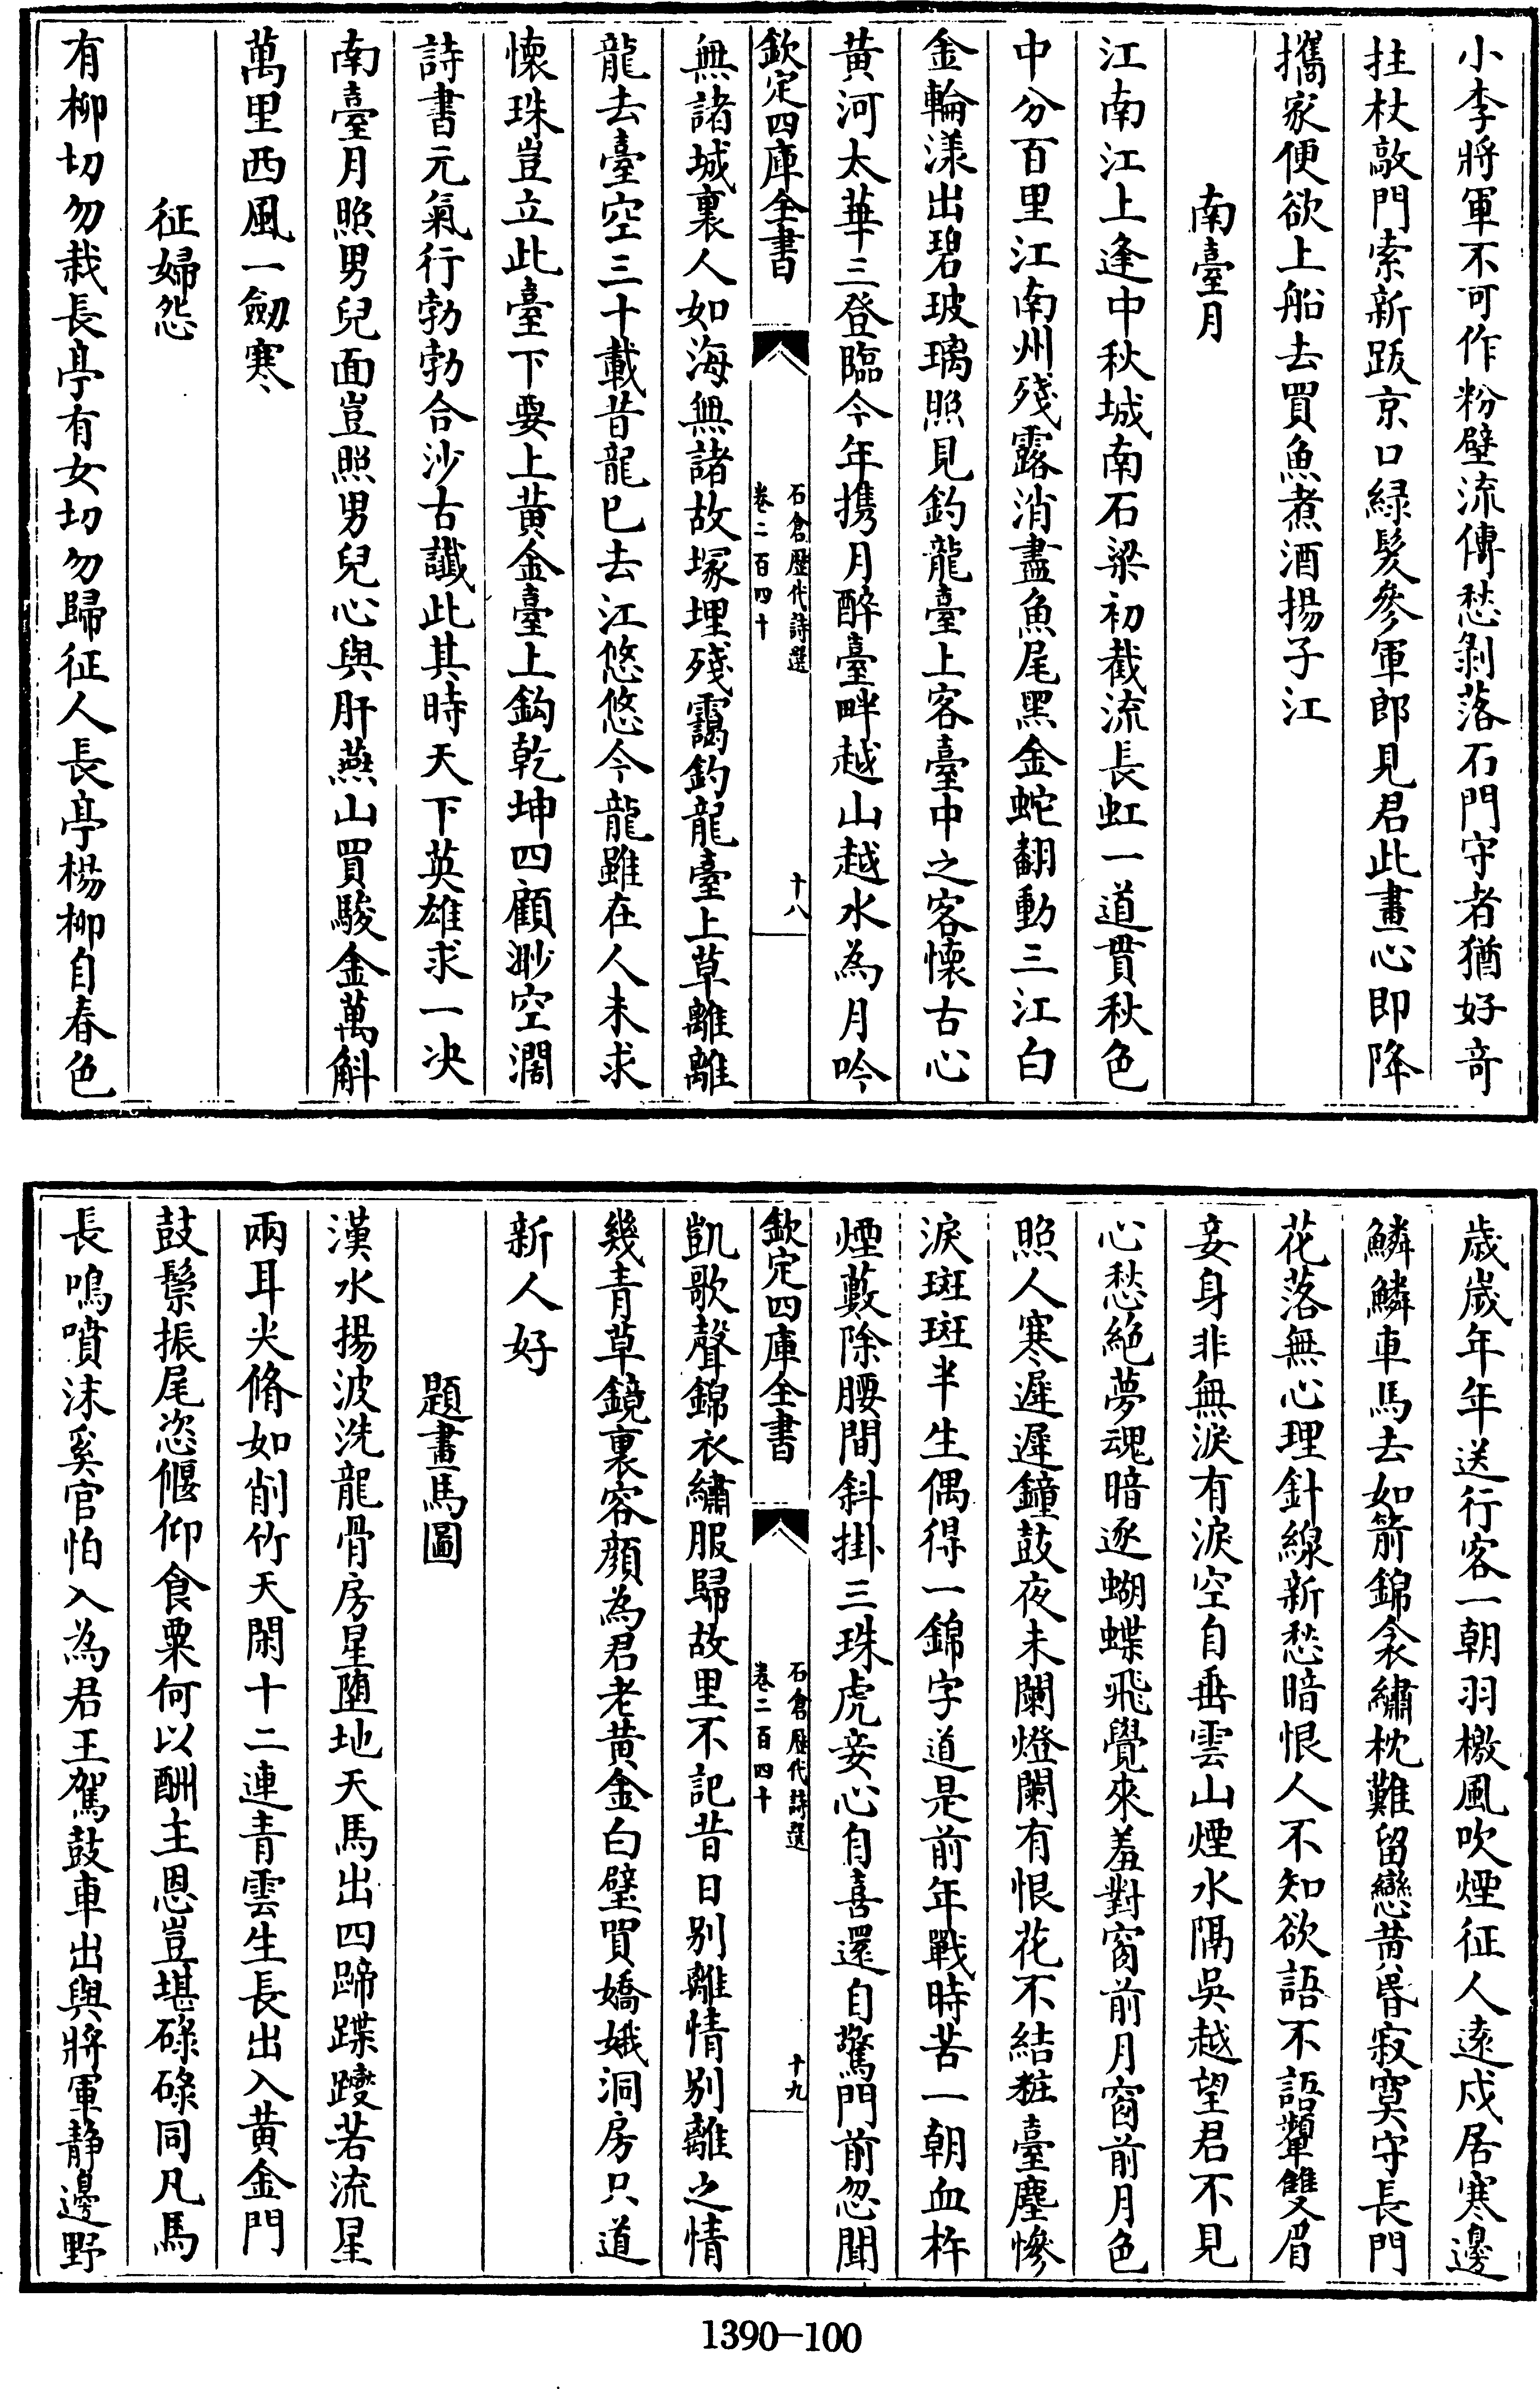 小李將軍不可作粉壁流傳愁剝落石門守者猶好奇
拄杖敲門索新跋京口緑髮參軍郎見君此畫心即降
攜家便欲上船去買魚煮酒揚子江
南臺月
江南江上逢中秋城南石梁初截流長虹一道貫秋色
中分百里江南州殘露消盡魚尾黑金蛇翻動三江白
金輪漾出碧玻璃照見釣龍臺上客臺中之客懷古心
黄河太華三登臨今年攜月醉臺畔越山越水為月吟
欽定四庫全書
石倉歷代詩選
卷二百四十
十八
無諸城裏人如海無諸故塚埋殘靄釣龍臺上草離離
龍去臺空三十載昔龍已去江悠悠今龍雖在人未求
懷珠豈立此臺下要上黄金臺上鈎乾坤四顧渺空濶
詩書元氣行勃勃合沙古讖此其時天下英雄求一决
南臺月照男兒面豈照男兒心與肝燕山買駿金萬斛
萬里西風一劒寒
征婦怨
有柳切勿栽長亭有女切勿歸征人長亭楊柳自春色
歳歳年年送行客一朝羽檄風吹煙征人遠戍居寒邊
鱗鱗車馬去如箭錦衾繡枕難留戀黄昏寂寞守長門
花落無心理針線新愁暗恨人不知欲語不語顰雙眉
妾身非無淚有淚空自垂雲山煙水隔吳越望君不見
心愁絶夢魂暗逐蝴蝶飛覺來羞對窗前月窗前月色
照人寒遲遲鐘鼓夜未闌燈闌有恨花不結粧臺塵慘
淚斑斑半生偶得一錦字道是前年戰時苦一朝血杵
煙藪除腰間斜掛三珠虎妾心自喜還自驚門前忽聞
欽定四庫全書
石倉歷代詩選
卷二百四十
十九
凱歌聲錦衣繡服歸故里不記昔日别離情别離之情
幾青草鏡裏容顔為君老黄金白璧買嬌娥洞房只道
新人好
題畫馬圖
漢水揚波洗龍骨房星墮地天馬出四蹄蹀躞若流星
兩耳尖脩如削竹天閑十二連青雲生長出入黄金門
鼓鬃振尾恣偃仰食粟何以酬主恩豈堪碌碌同凡馬
長鳴噴沫奚官怕入為君王駕鼓車出與將軍静邊野
1390—100